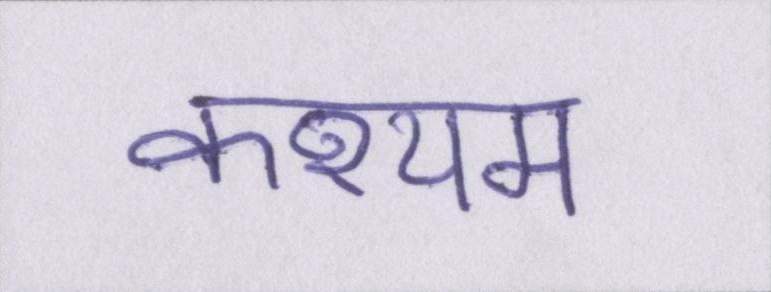 कश्यम